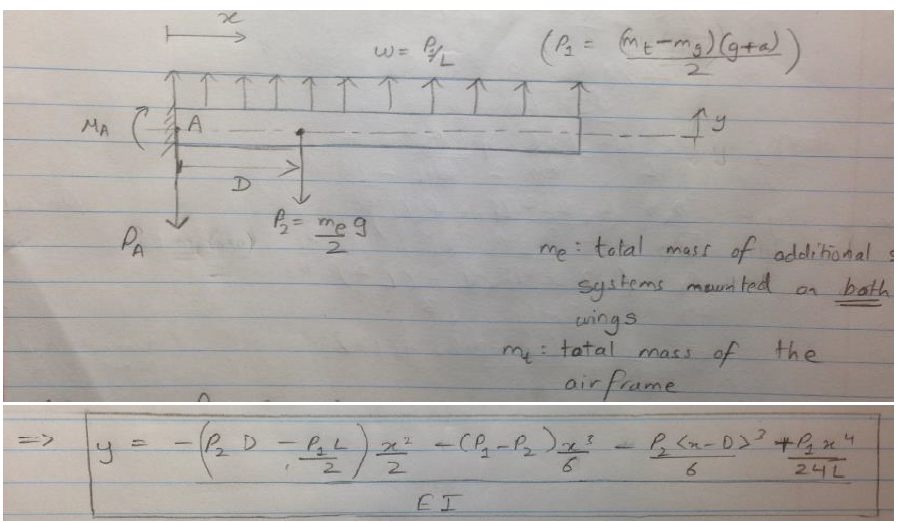 x
w = P₁/L (P₁ = (m_t - m_g)(g+a)/2)
M_A A y
D
P_A P₂ = m_e g/2
m_e : total mass of additional
systems mounted on both
wings
m_t : total mass of the
airframe
=> y = -(P₂ D - P₁L/2) x²/2 - (P₁-P₂) x³/6 - P₂<x-D>³/6 + P₁x⁴/24L
EI